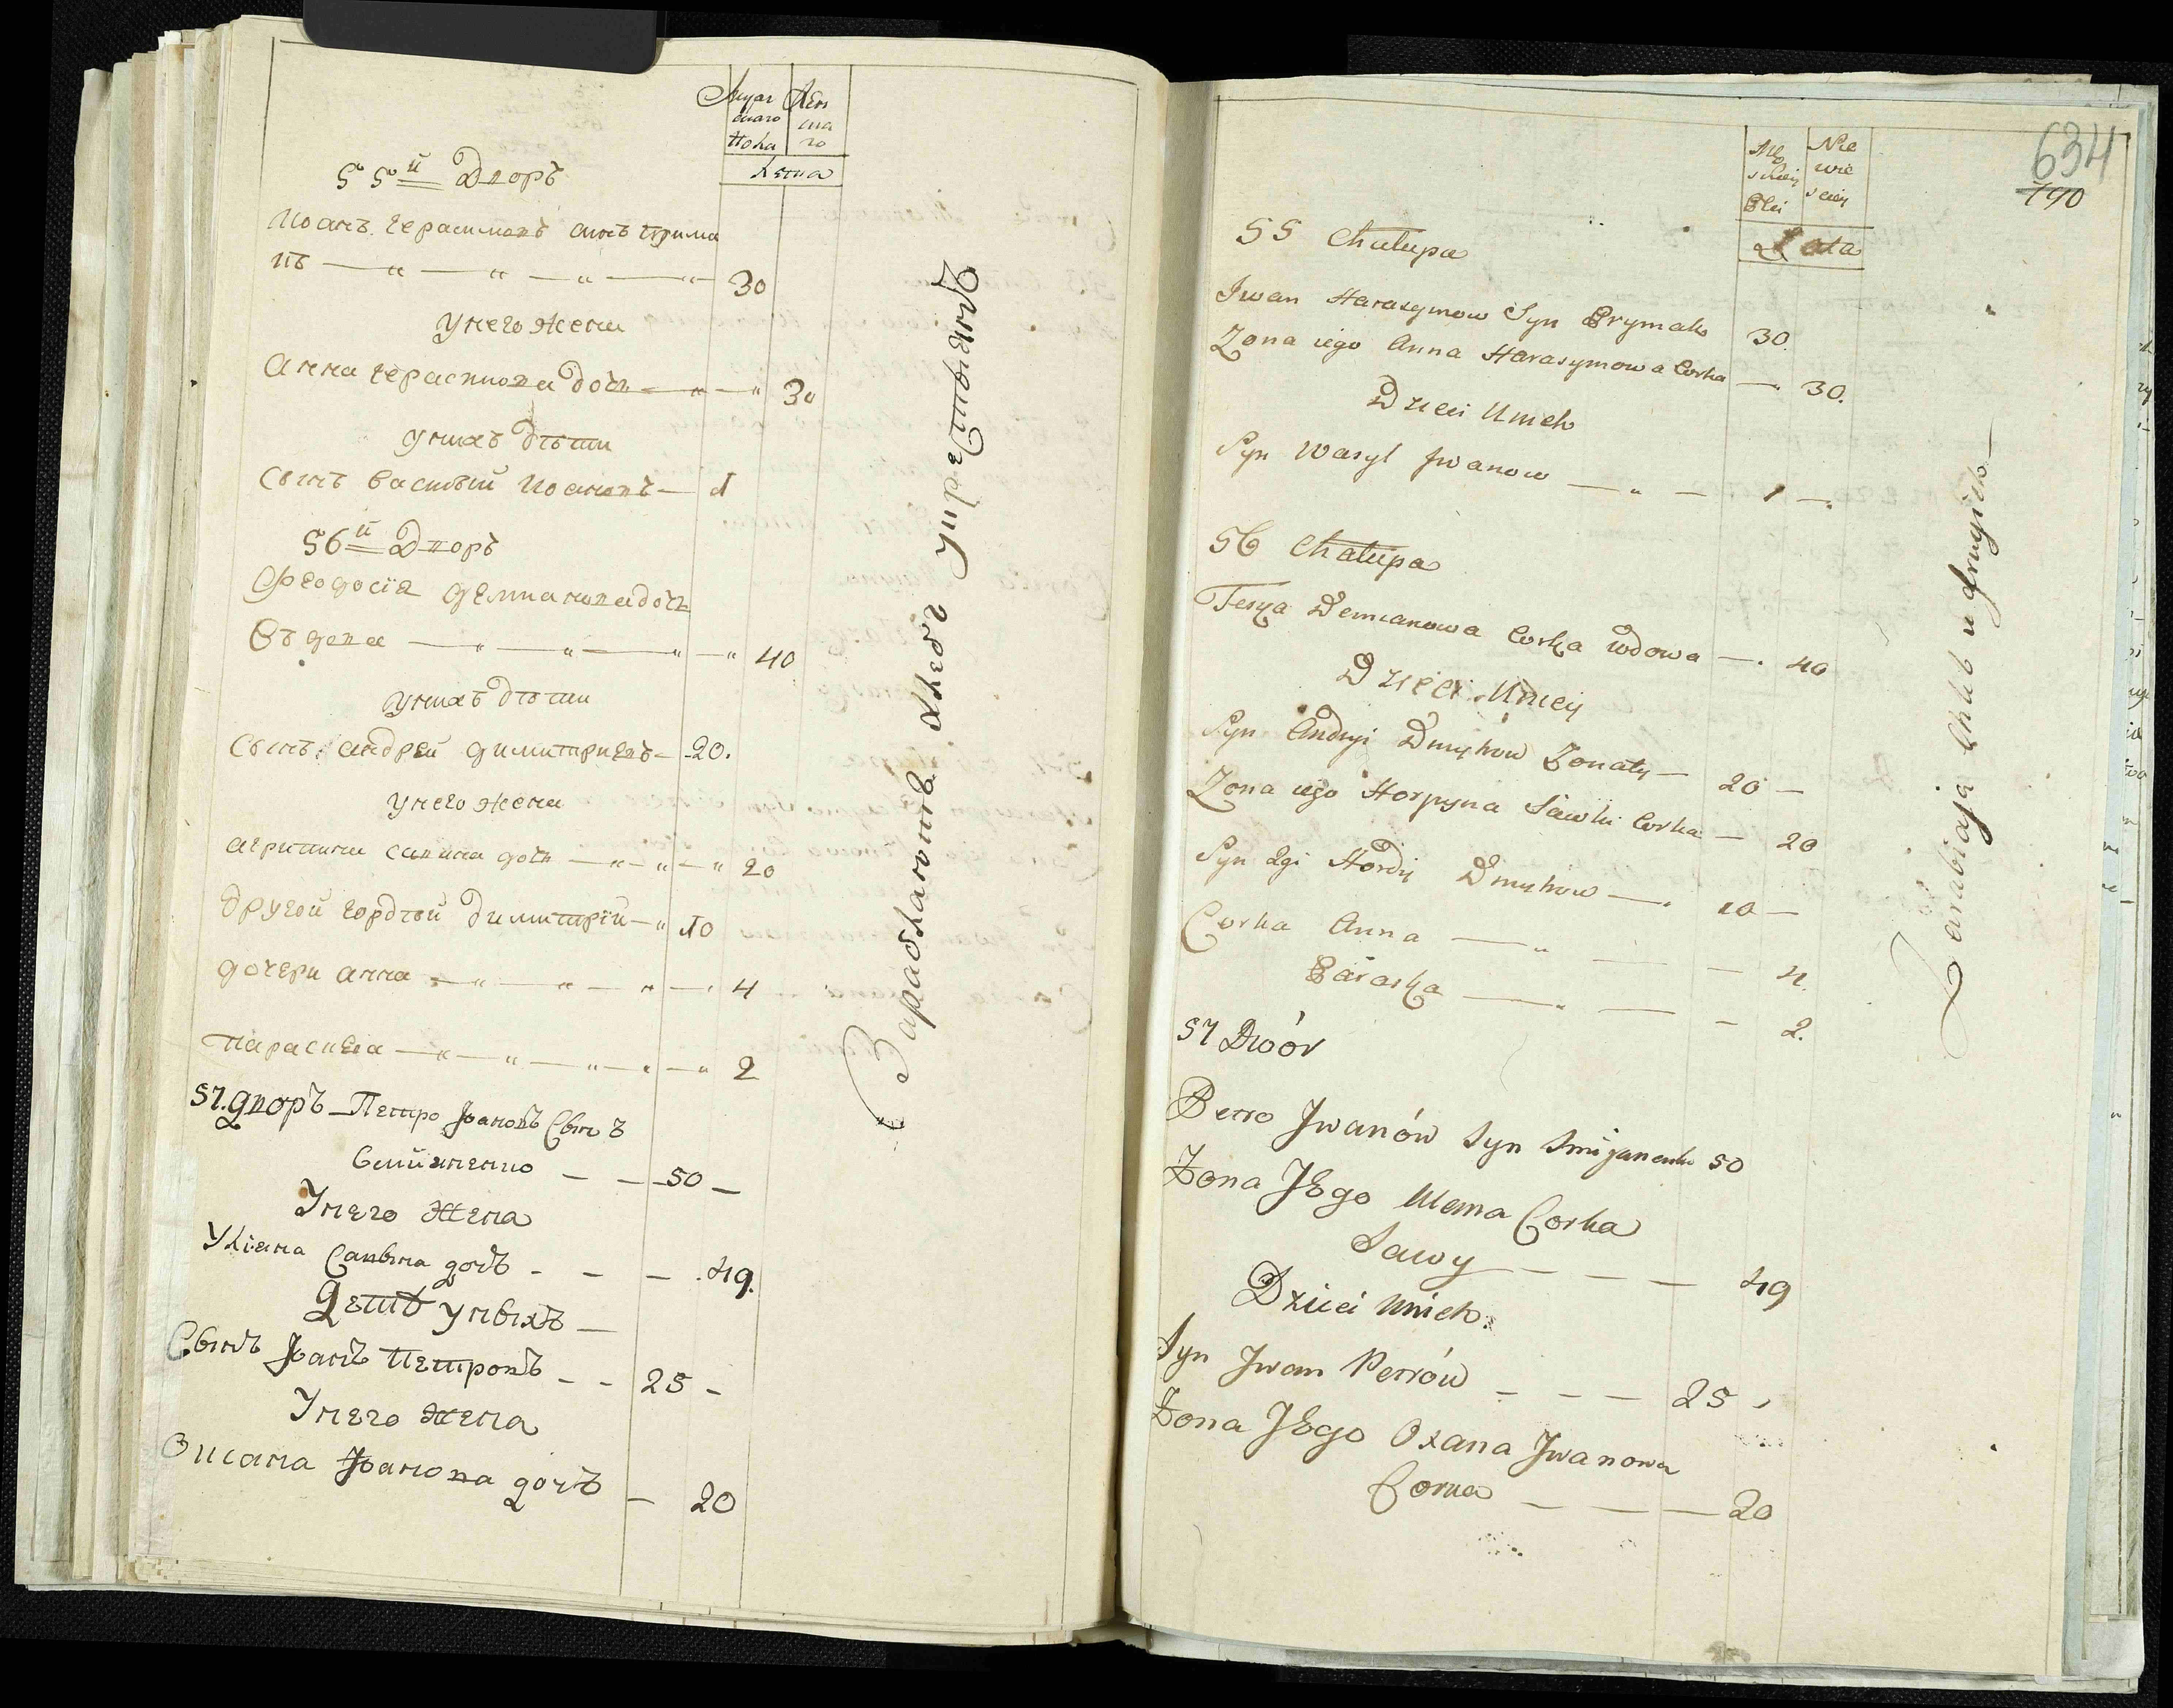 Мужескаго Пола
Женскаго
Лета
55й Дворъ
Иоанъ Герасимовъ синъ Прима
къ 30
У него жена
Анна Герасимова дочь 30
У нихъ дѣти
Сынъ Василий Иоановъ 1
56й Дворъ
Феодосія Демианова дочь
Вдова 40
У нихъ дѣти
Сынъ андрей димитриевъ 20.
У него жена
агрипина савина дочь 20
другой гордѣй димитрій 10
дочери анна 4
Параскева 2
57. дворъ Петро Јвановъ Сынъ
50
У него Жена
Уліана Савына дочъ 49.
Детѣ у ныхъ
Сынъ Јванъ Петровъ 25
У него жена
Оксана Јванова дочъ 20
Зарабляютъ хлебъ у крестьянъ
634
790
Męskiey Płci
Niewiesciey
Lata
55 Chałupa
Iwan Harasymow Syn Prymak 30.
Zona iego Anna Harasymowa Corka 30.
Dzieci Unich
Syn Wasyl Jwanow 1
56 Chałupa
Teska Demianowa Corka wdowa 40
Dzieci Uniey
Syn Andryi Dmytrow Zonaty 20
Zona iego Horpyna Sawki Corka 20
Syn 2gi Hordij Dmytrow 10
Corka Anna 4.
Paraska 2.
57 Dwór
Petro Jwanów Syn 50
Zona Jego Ulema Corka
Sawy 49
Dzieci Unich.
Syn Jwan Petrów 25
Zona Jego Oxana Jwanowa
Corka 20
Zarabiają Chleb u drugich